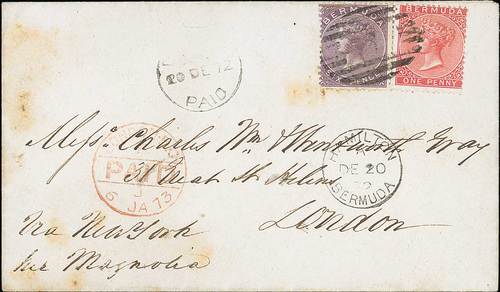 BERMUDA
PENCE
BERMUDA
ONE PENNY
20 DE 72
PAID
Messrs Charles Wm & Wentworth Gray
Great St Helens
London
Via New York
per Magnolia
PAID
6 JA 73
HAMILTON
A
DE 20
72
BERMUDA